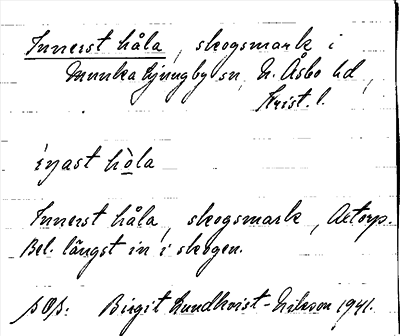 Innerst håla, skogsmark i
Munka Ljungby sn, N. Åsbo hd,
Krist. l.
inast hola
Innerst håla, skogsmark, Axtorp.
Bel. längst in i skogen.
Birgit Lundkvist-Nilsson 1941.